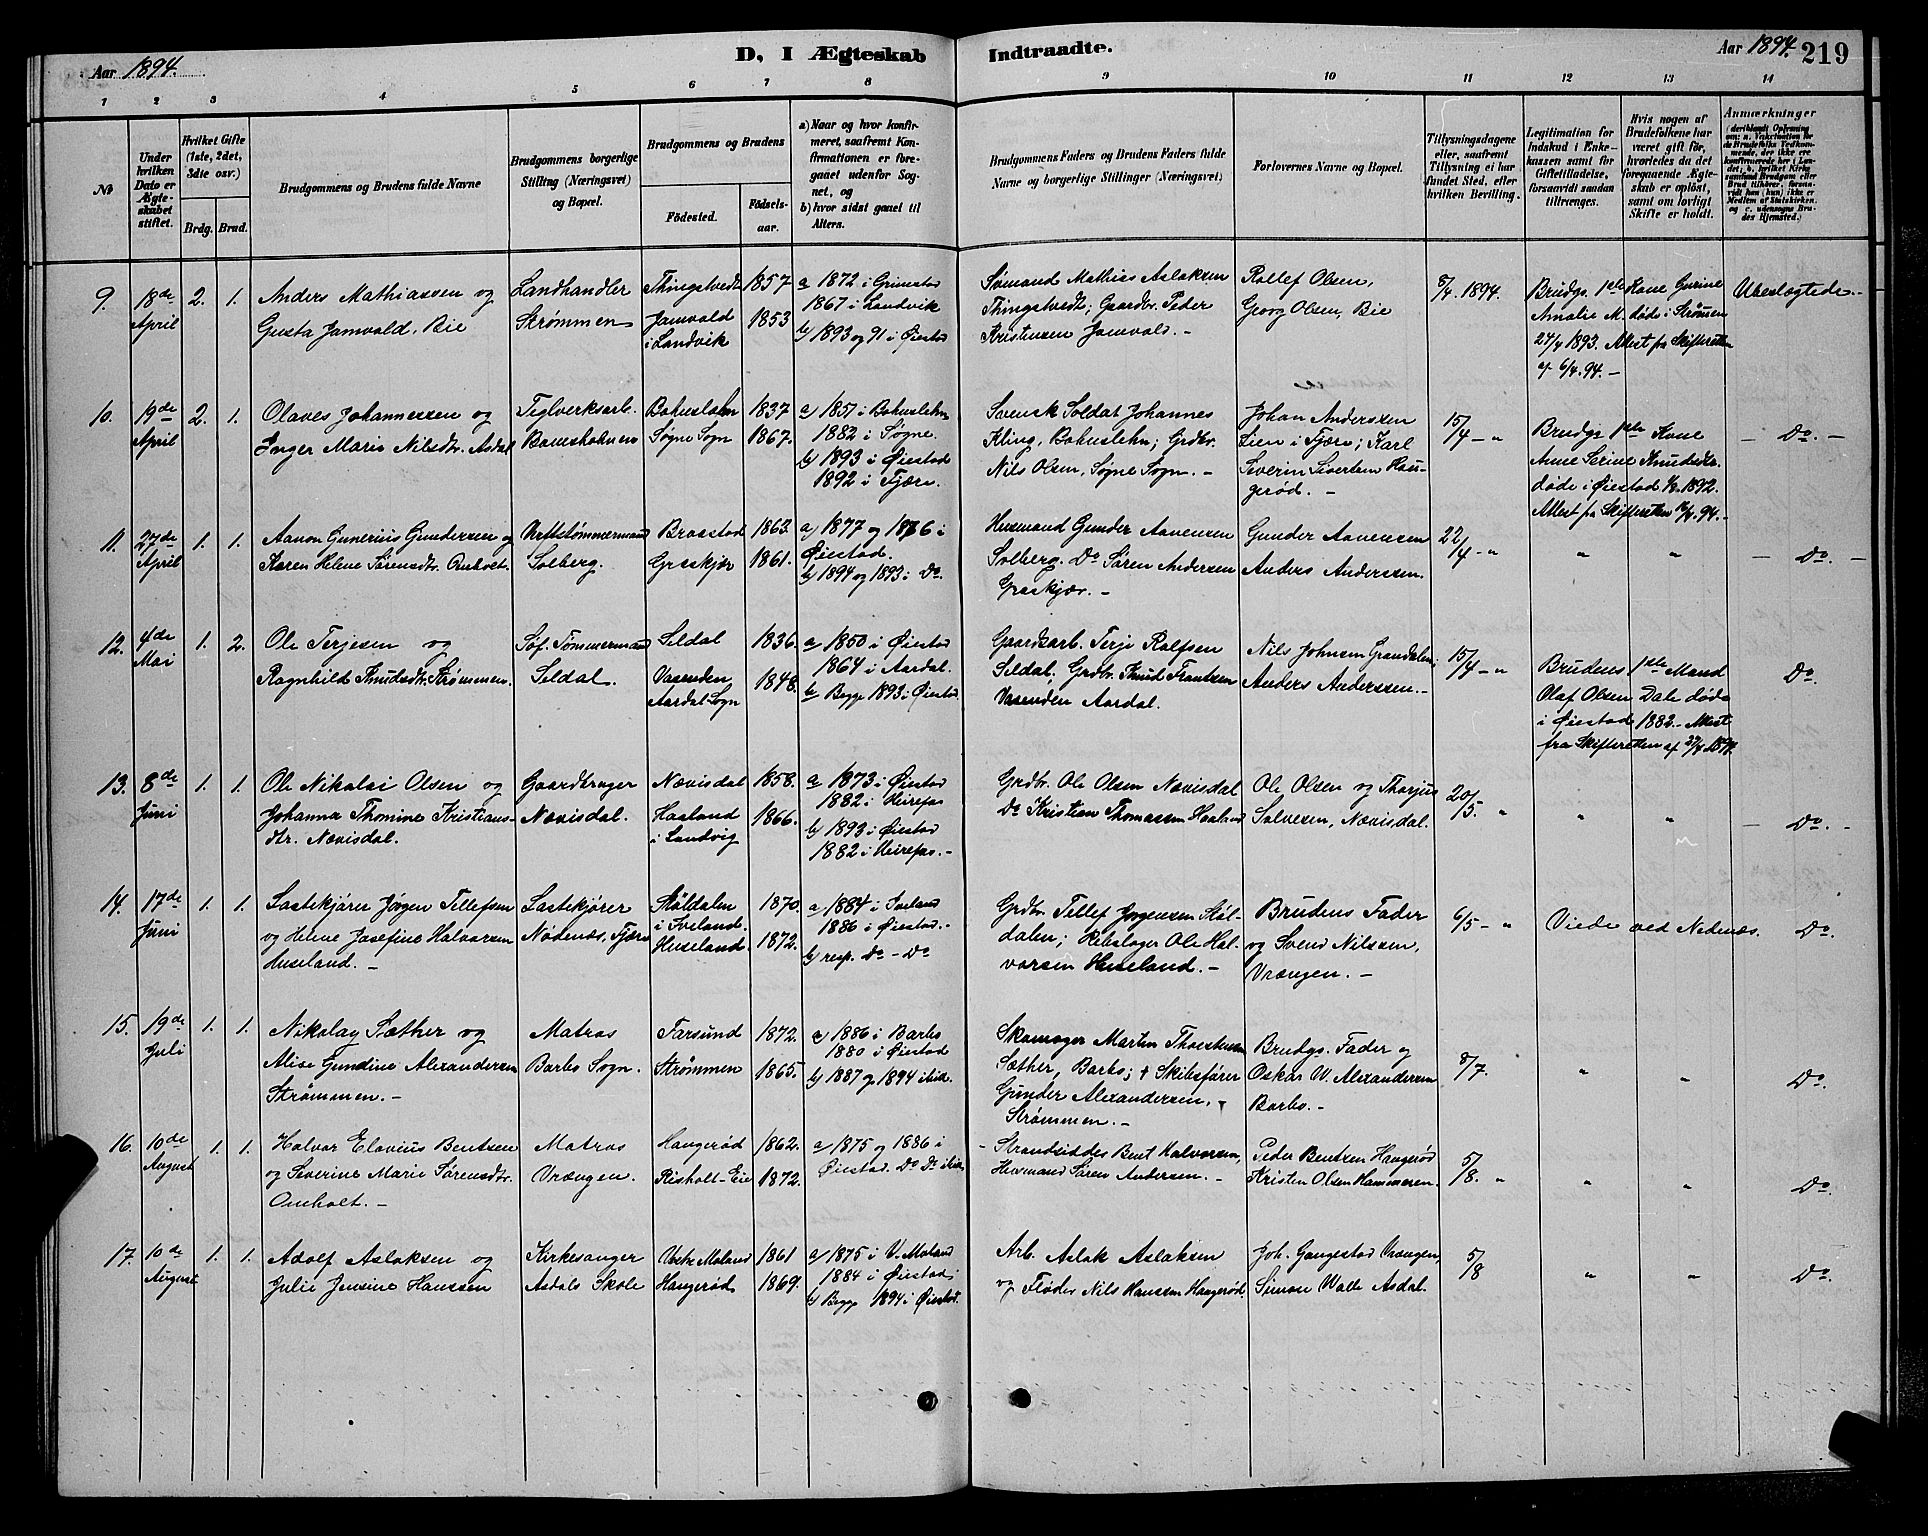 Aar 1894.
D, I Ægteskab
Indtraadte.
Aar 1894.
219
1 2 3 4 5 6 7 8 9 10 11 12 13 14
No
Under hvilken Dato er Ægteskabet stiftet.
Hvilket Gifte (1ste, 2det, 3die osv.)
Brdg. Brud.
Brudgommens og Brudens fulde Navne
Brudgommens borgerlige Stilling (Næringsvei) og Bopæl.
Brudgommens og Brudens
Födested.
Födselsaar.
a) Naar og hvor konfirmeret, saafremt Konfirmationen er foregaaet udenfor Sognet, og
b) hvor sidst gaaet til Alters.
Brudgommens Faders og Brudens Faders fulde Navne og borgerlige Stillinger (Næringsvei)
Forlovernes Navne og Bopæl.
Tillysningsdagene eller, saafremt Tillysning ei har fundet Sted, efter hvilken Bevilling.
Legitimation for Indskud i Enkekassen samt for Giftetilladelse, forsaavidt saadan tiltrænges.
Hvis nogen af Brudefolkene har været gift før, hvorledes da det foregaaende Ægteskab er opløst, samt om lovligt Skifte er holdt.
Anmærkninger
9. 18de April 2. 1.
Anders Mathiassen og
Gusta Jamvold, Bie
Landhandler
Strømmen
Thingstvedt 1857
Jamvold i Landvik 1853
a 1872 i Grimstad
1867 i Landvik
b) 1893 og 91 i Øiestad
Sømand Mathias Aslaksen
Thingstvedt; Gaardbr. Peder
Kristensen Jamvold. -
Rollef Olsen,
Georg Olsen, Bie
8/4 1894.
Brudgs. 1ste Kone Gurine
Amalie M. døde i Strømmen
24/4 1893. Attest fra Skifteretten
af 6/4. 94. -
Ubeslægtede.
10. 19de April 2. 1.
Olaves Johannessen og
Inger Marie Nilsdtr. Asdal
Teglverksarb.
Bohuslehn 1837
Søgne Sogn 1867.
a) 1851 i Bohuslehn
1882 i Søgne.
b) 1893 i Øiestad
1892 i Fjære.
Svensk Soldat Johannes
Kling, Bohuslehn; Grdbr.
Nils Olsen, Søgne Sogn. -
Johan Anderssen
Lien i Fjære; Karl
Severin Sivertsen Haugerød. -
15/4 - "
Brudgs. 1ste Kone
Anne Serine Knudsdtr.
døde i Øiestad 1892.
Attest fra Skifteretten 94. -
- Do. -
11. 27de April 1. 1.
Aanon Gunerius Gundersen og
Karen Helene Sørensdtr. Omholt.
Solberg.
Brosstad 1863.
Græskjær 1861.
a) 1877 og 1876 i
Øiestad.
b) 1894 og 1893 i Do.
Husmand Gunder Aanensen
Solberg. Do Søren Andersen
Græskjær. -
Gunder Aanensen
Anders Anderssen.
22/4 - "
" "
- Do. -
12. 4de Mai 1. 2.
Ole Terjesen og
Ragnhild Knudsdtr. Strømmen.
Søf. Tømmermand
Seldal.
Seldal 1836.
Vasenden Aardal Sogn 1848.
a 1850 i Øiestad
1864 i Aardal.
b Begge 1893 i Øiestad.
Gaardsarb. Terje Rolfsen
Seldal, Grdbr. Knud Frantzen
Vasenden Aardal.
Nils Johnsen Grandalen,
Anders Anderssen. -
15/4 - "
Brudens 1ste Mand
Olaf Olsen Dale døde
i Øiestad 1882. - Attest
fra Skifteretten af 27/4 1894.
Do.
13. 8de Juni 1. 1.
Ole Nikolai Olsen og
Johanna Thomine Kristiansdtr. Nævisdal.
Gaardbruger
Nævisdal.
Nævisdal 1858.
Haaland i Landvig 1866.
a 1873 i Øiestad
1882 i Heirefos
b) 1893 i Øiestad
1882 i Heirefos. -
Grdbr. Ole Olsen Nævisdal
Do Kristian Thomassen Haaland
Ole Olsen og Thorjus
Salvesen, Nævisdal.
20/5. "
" "
- Do. -
14. 17de Juni 1. 1.
Lastekjører Jørgen Tellefsen
og Helene Josefine Halvorsen
Huseland. -
Lastekjører
Nødenæs. Fjære
Støldalen i Iveland. 1870.
Huseland. 1872.
a) 1884 i Iveland
1886 i Øiestad. -
b) resp. Do - Do
Grdbr. Tellef Jørgensen Støldalen; Rebslager Ole Halvorsen Huseland. -
Brudens Fader
og Svend Nilssen,
Vrængen. -
6/5 - "
Viede ved Nedenæs.
Do.
15. 19de Juli 1. 1.
Nikolay Sæther og
Alise Gundine Alexandersen
Strømmen. -
Matros
Barbo Sogn.
Farsund 1872.
Strømmen 1865.
a) 1886 i Barbo
1880 i Øiestad
b) 1887 og 1894 ibid.
Skomager Martin Thorstensen
Sæther, Barbo; + Skibsfører
Gunder Alexandersen,
Strømmen. -
Brudgs. Fader og
Oskar W. Alexandersen
Barbo. -
8/7.
" "
Do.
16. 10de August 1. 1.
Halvor Elavius Bentsen
og Severine Marie Sørensdtr.
Omholt. -
Matros
Vrængen.
Haugerød 1862.
Risholt-Eie 1872.
a 1875 og 1886 i
Øiestad. Do Do ibid.
- Strandsidder Bent Halvorsen,
Husmand Søren Andersen. -
Peder Bentzen Haugerød
Kristen Olsen Hammeren.
5/8. "
" "
Do.
17. 10de August 1. 1.
Adolf Aslaksen og
Julie Jensine Hanssen
Kirkesanger
Asdals Skole
Vestre Moland 1861
Haugerød 1869.
a) 1875 i V. Moland
1884 i Øiestad;
b) Begge 1894 i Øiestad.
Arb. Aslak Aslaksen
og Fløder Nils Hanssen Haugerød.
Joh. Gangestad Vrængen,
Simon Walle Asdal.
5/8
" "
Do.